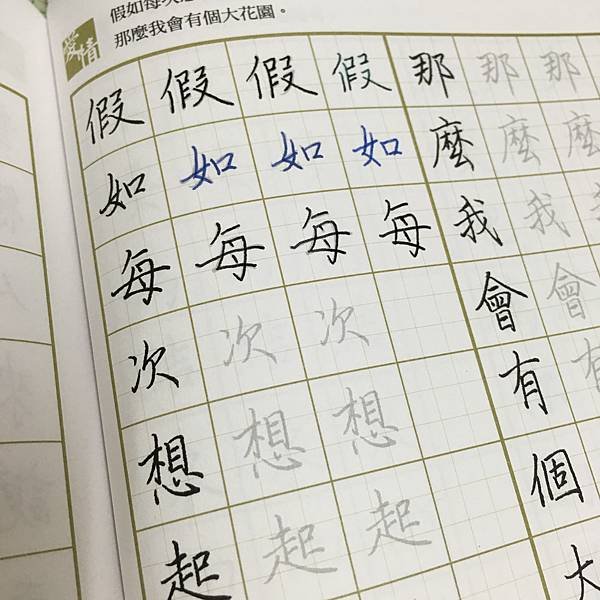 愛情
假如每次
那麼我會有個大花園。
假假假假那那那
如如如如麼麼麼
每每每每我我我
次次次會會
想想想有有
起起起個
大